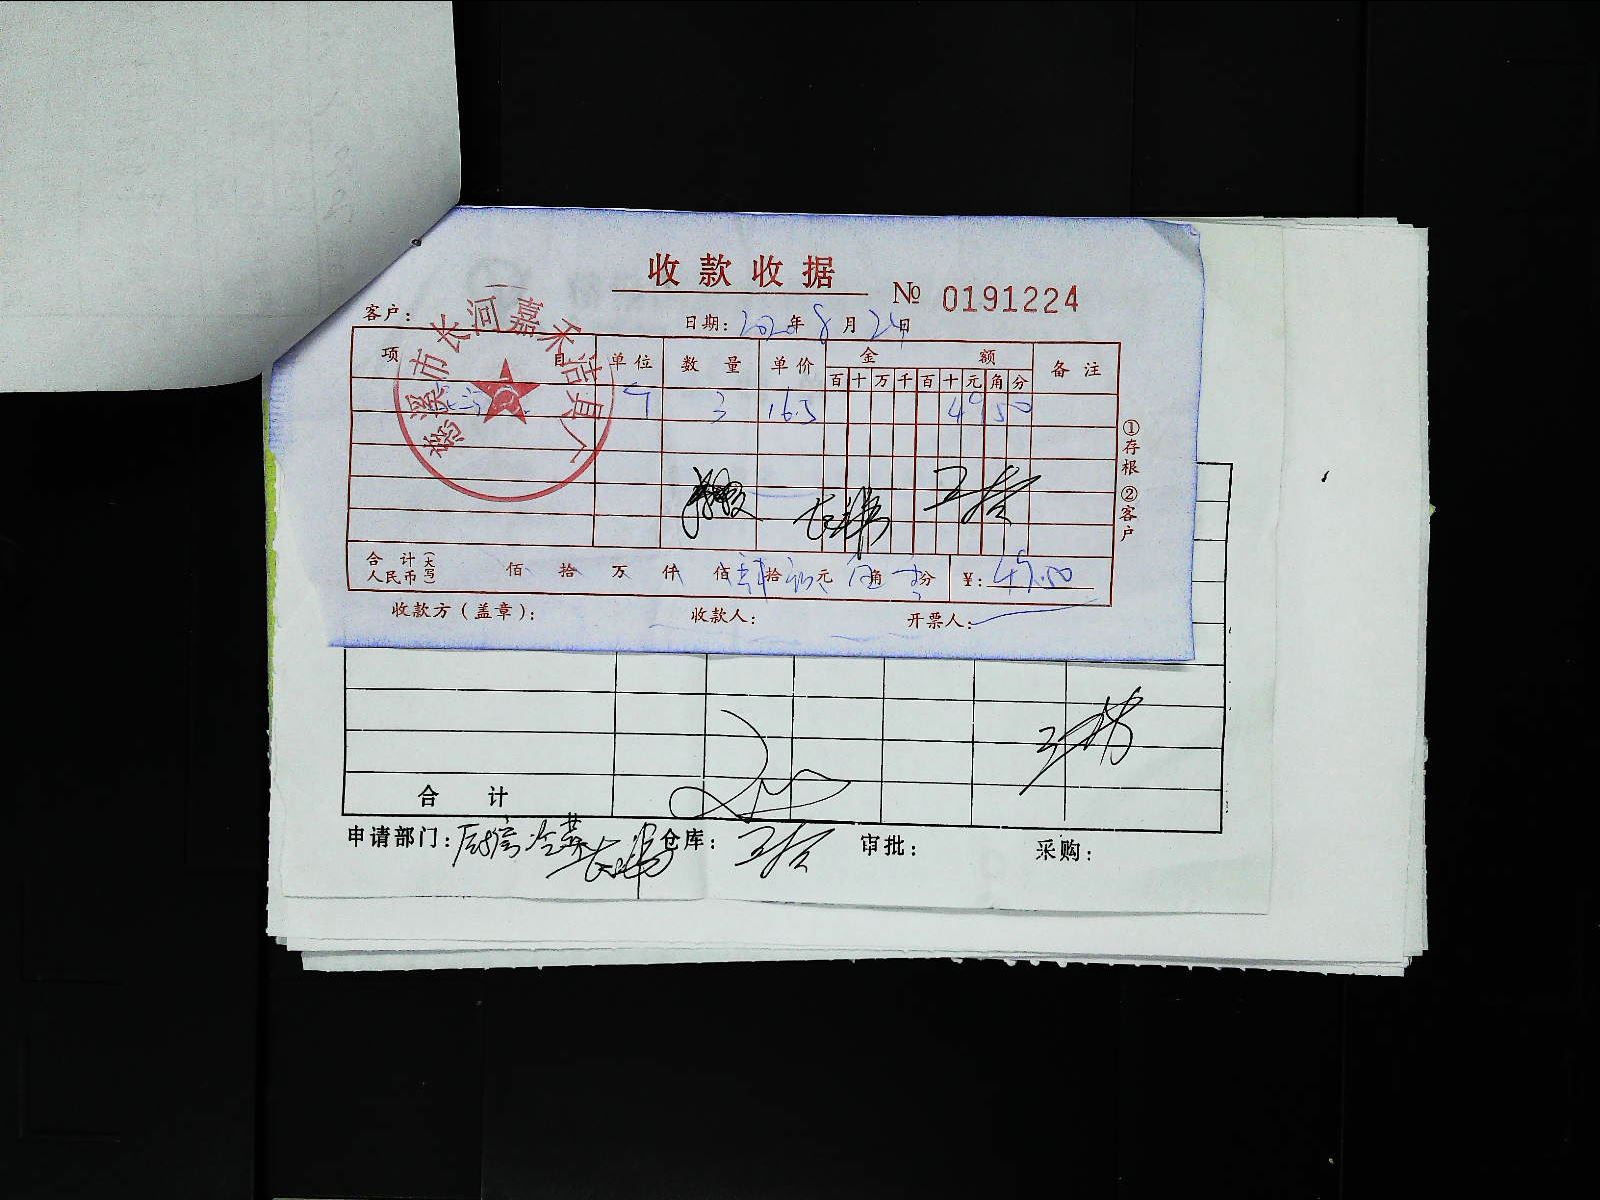 收款收据
№ 0191224
客户:
日期: 2020年 8月 24日
慈溪市长河嘉禾洁具厂
项 目 单位 数量 单价 金额 备注
百 十 万 千 百 十 元 角 分
个 3 16.5 49 50
①存根 ②客户
合计(大写)人民币 佰 拾 万 仟 佰 肆拾 玖元 伍角 零分 ¥: 49.50
收款方(盖章): 收款人: 开票人:
合 计
申请部门: 厨房冷菜 仓库: 审批: 采购: